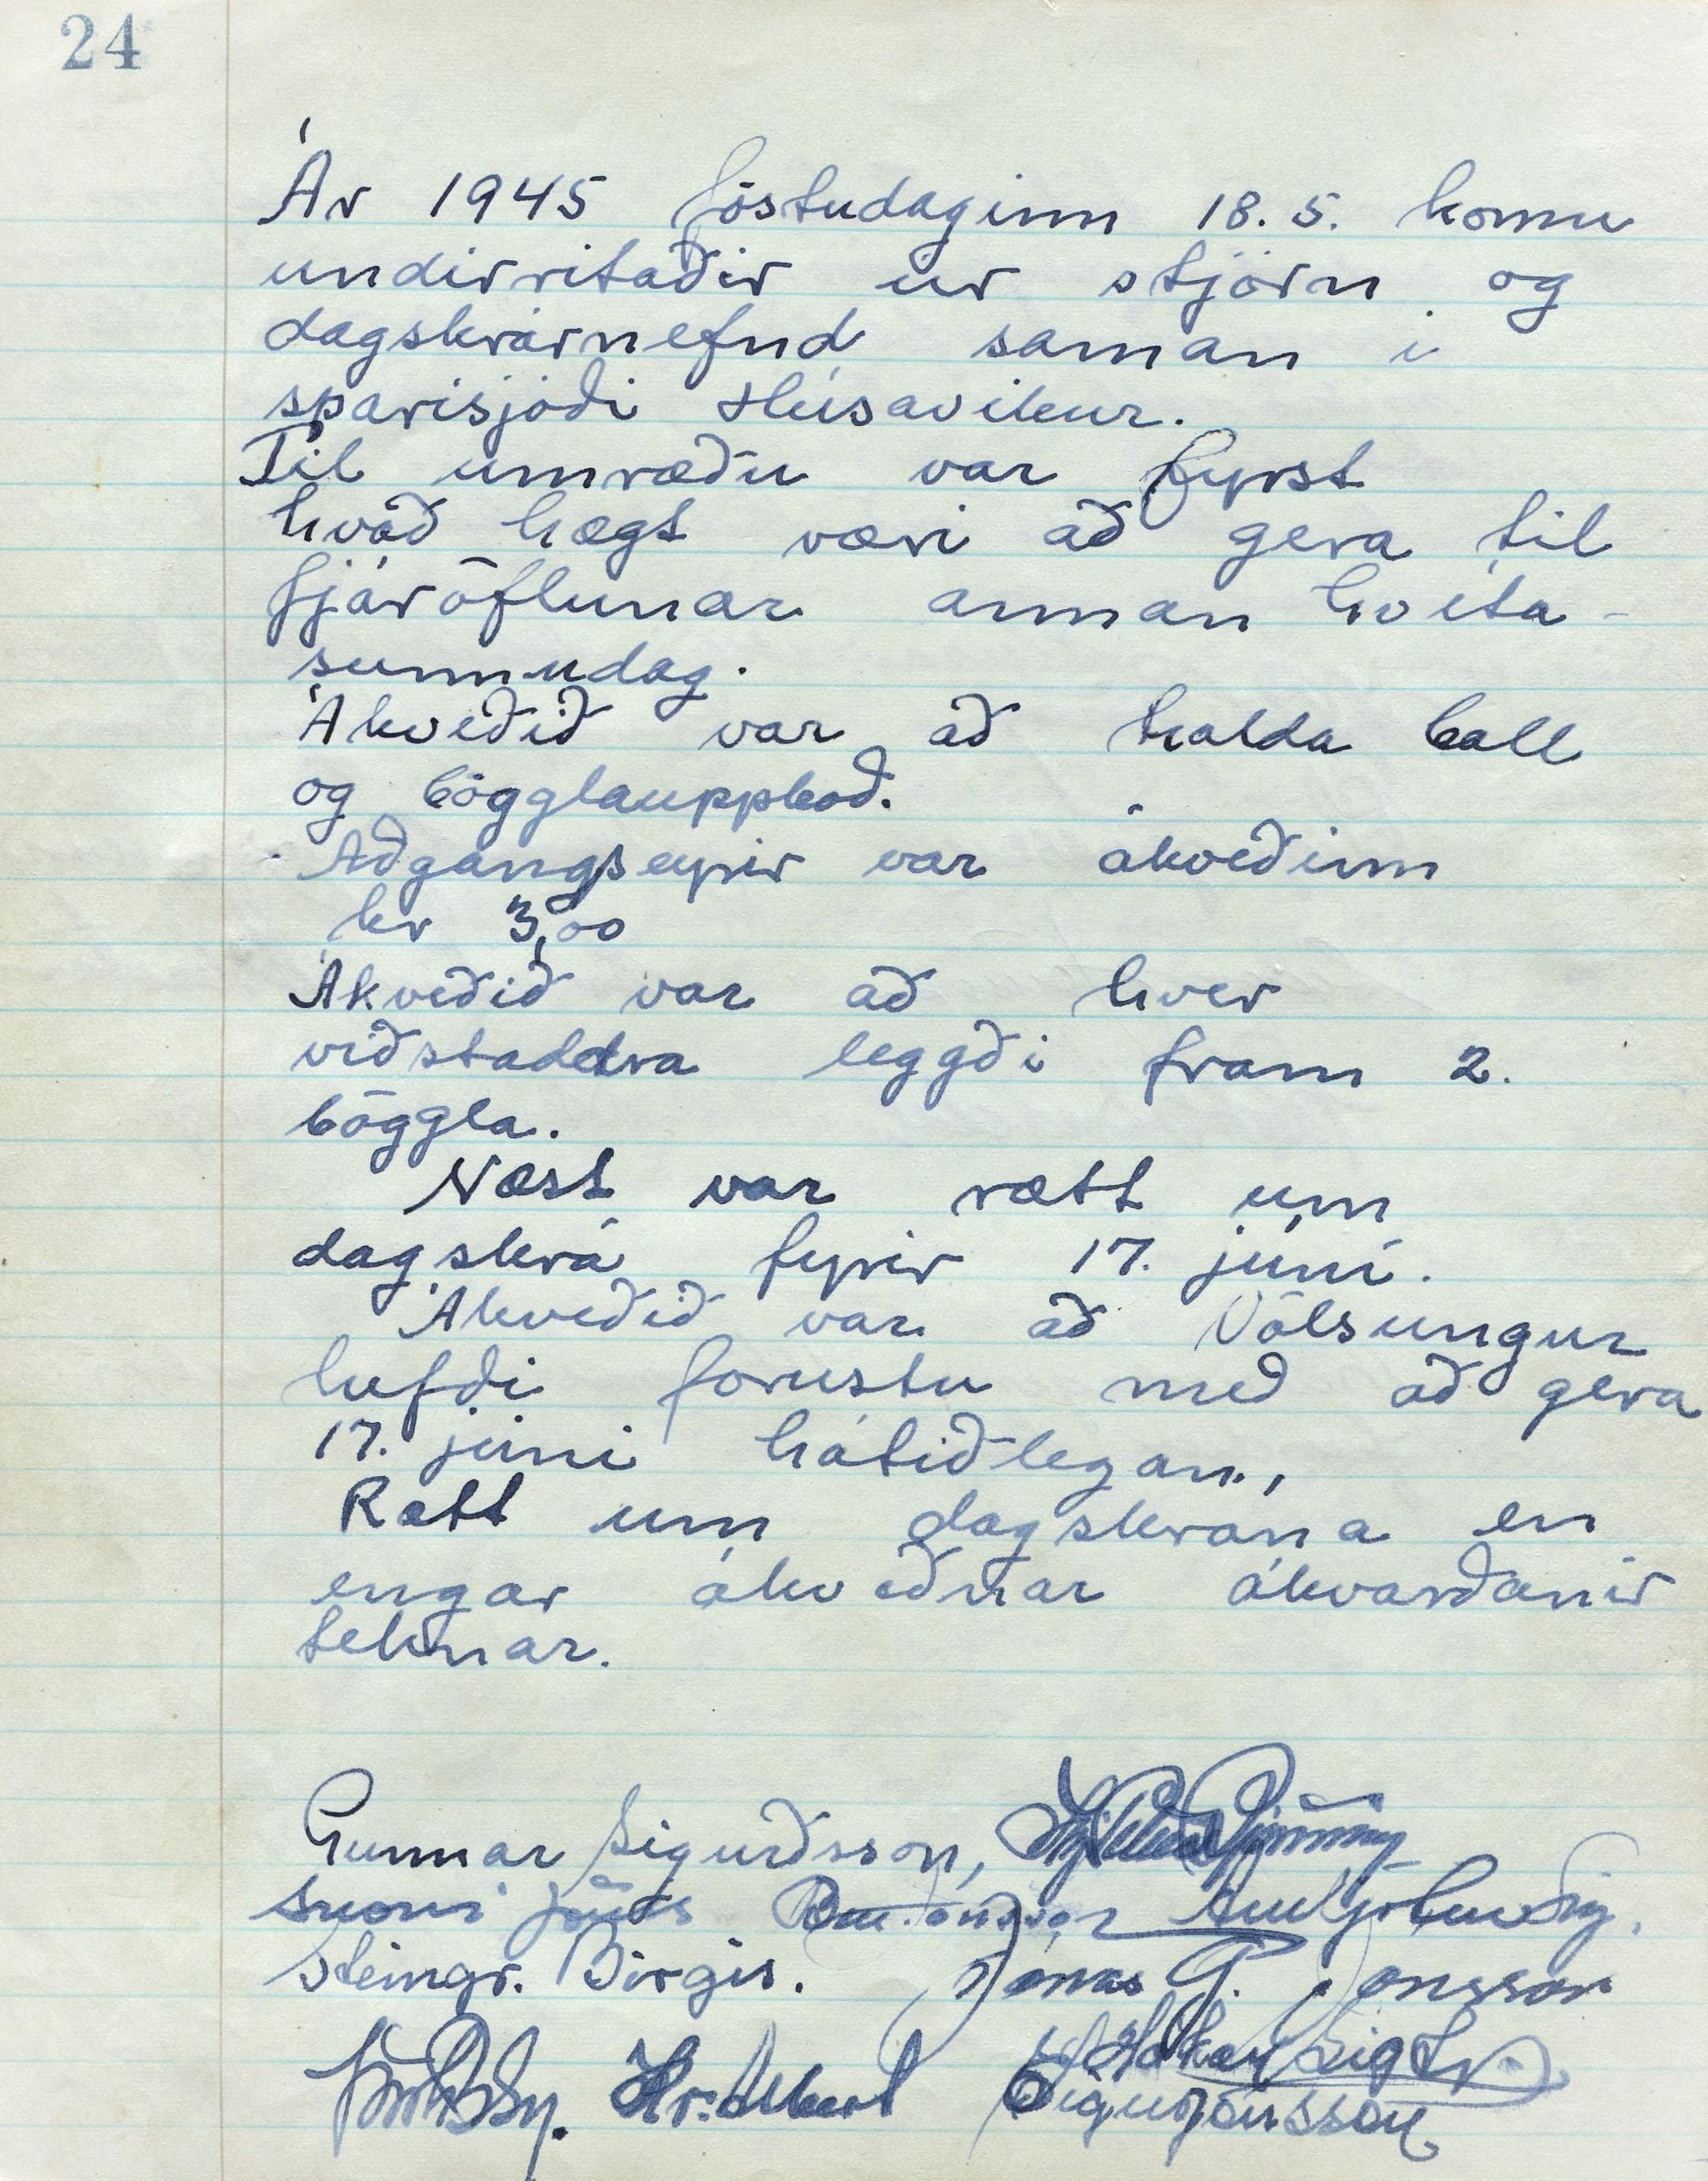 24
Ár 1945 föstudaginn 18. 5. komu
undirritaðir úr stjórn og
dagskrárnefnd saman í
sparisjóði Húsavíkur.
Til umræðu var fyrst
hvað hægt væri að gera til
fjáröflunar annan hvíta-
sunnudag.
Ákveðið var að halda ball
og bögglauppboð.
Aðgangseyrir var ákveðinn
kr 3,00
Ákveðið var að hver
viðstaddra leggði fram 2.
böggla.
Næst var rætt um
dagskrá fyrir 17. júní.
Ákveðið var að Völsungur
hefði forustu með að gera
17. júní hátíðlegan,
Rætt um dagskrána en
engar ákveðnar ákvarðanir
teknar.
Gunnar Sigurðsson,
Steingr. Birgis. Jónas G. Jónsson
Hákon Sigtr.
Sigurjónsson